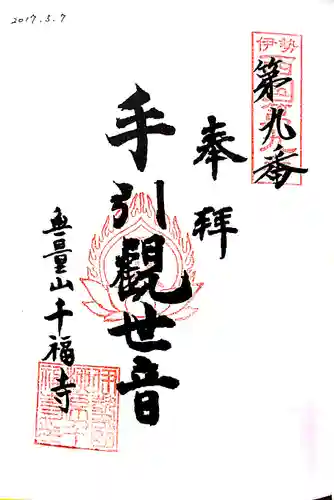 2017.5.7
伊勢
第九番
奉拜
手引觀世音
無量山千福寺